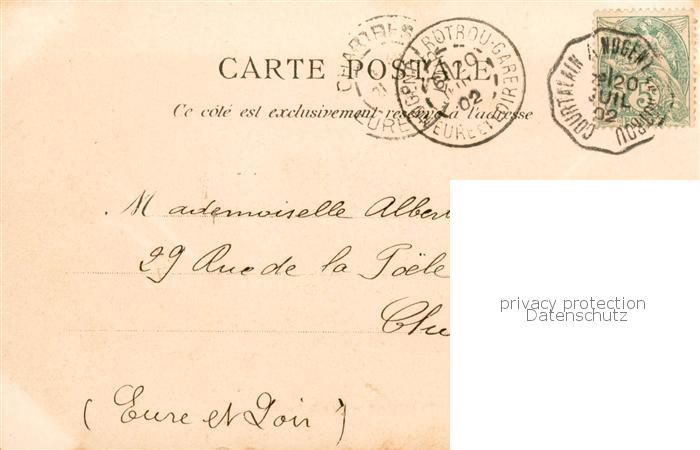 CARTE POSTALE
Ce côté est exclusivement réservé à l'adresse
CHARTRES
EURE
NOGENT-LE-ROTROU-GARE
20
02
EURE ET LOIR
COURTALAIN A NOGENT LE ROTROU
20
JUIL
02
Mademoiselle Alber
29 Rue de la Poële
Ch
(Eure et Loir)
privacy protection
Datenschutz